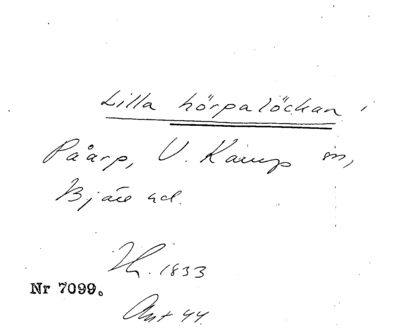 Lilla hörpalöckan
Påarp, V. Karup sn,
Bjäre hd.
Th. 1833
Nr 7099.
Ant 44